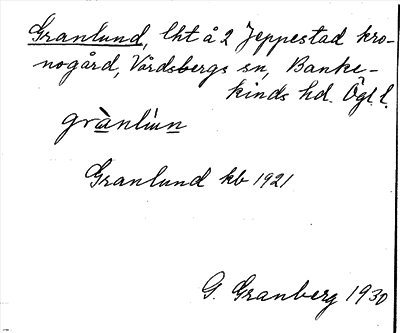 Granlund, lht å 2 Jeppestad kro-
nogård, Vårdsbergs sn, Banke-
kinds hd. Ögl. l.
grànlun
Granlund kb 1921
G. Granberg 1930